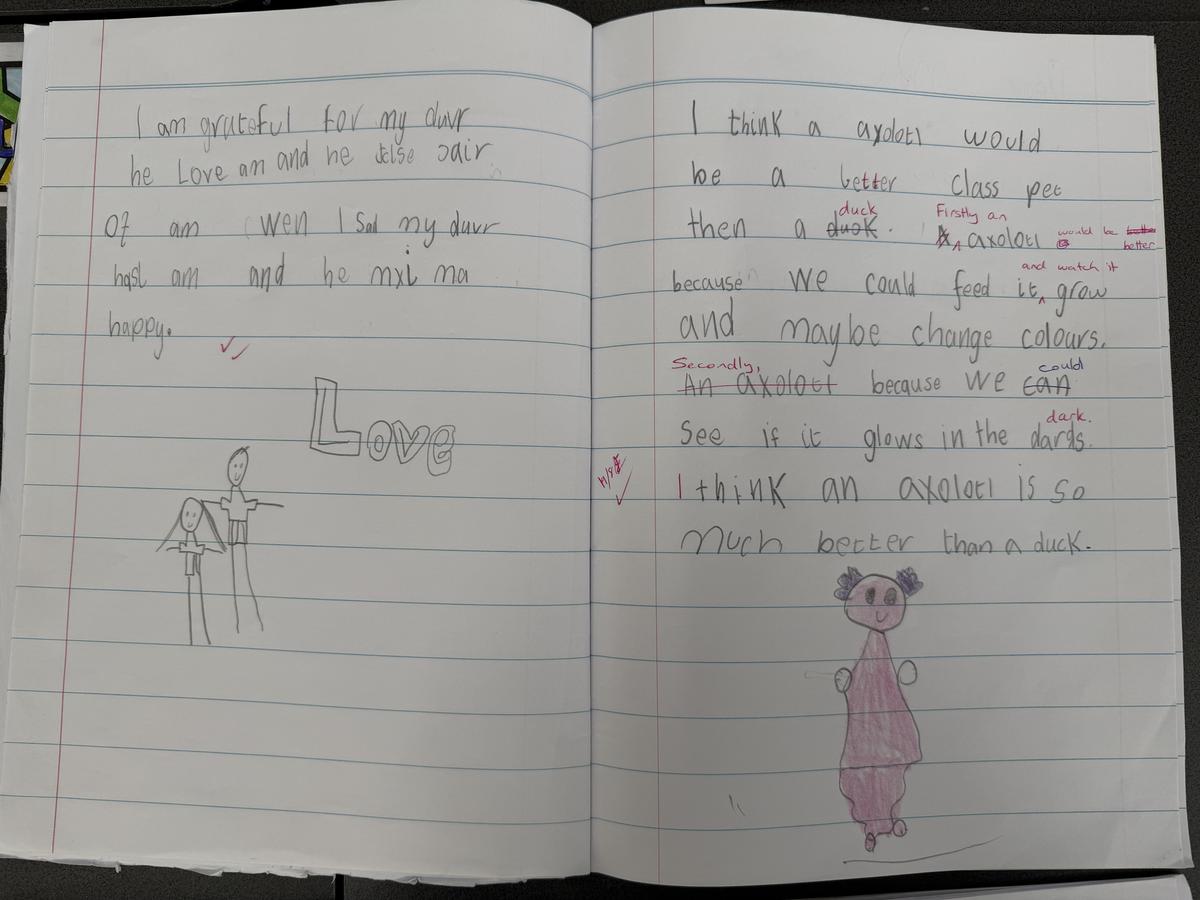 I am grateful for my duvr
he Love am and he else sair
Of am wen I sad my duvr
hasl am and he mxi ma
happy.
Love
I think a axolotl would
be a better class pet
duck Firstly an
then a duok. A axolotl would be better
because we could feed it grow
and watch it
and maybe change colours.
Secondly, could
An axolotl because we can
dark.
see if it glows in the dards.
I think an axolotl is so
much better than a duck.